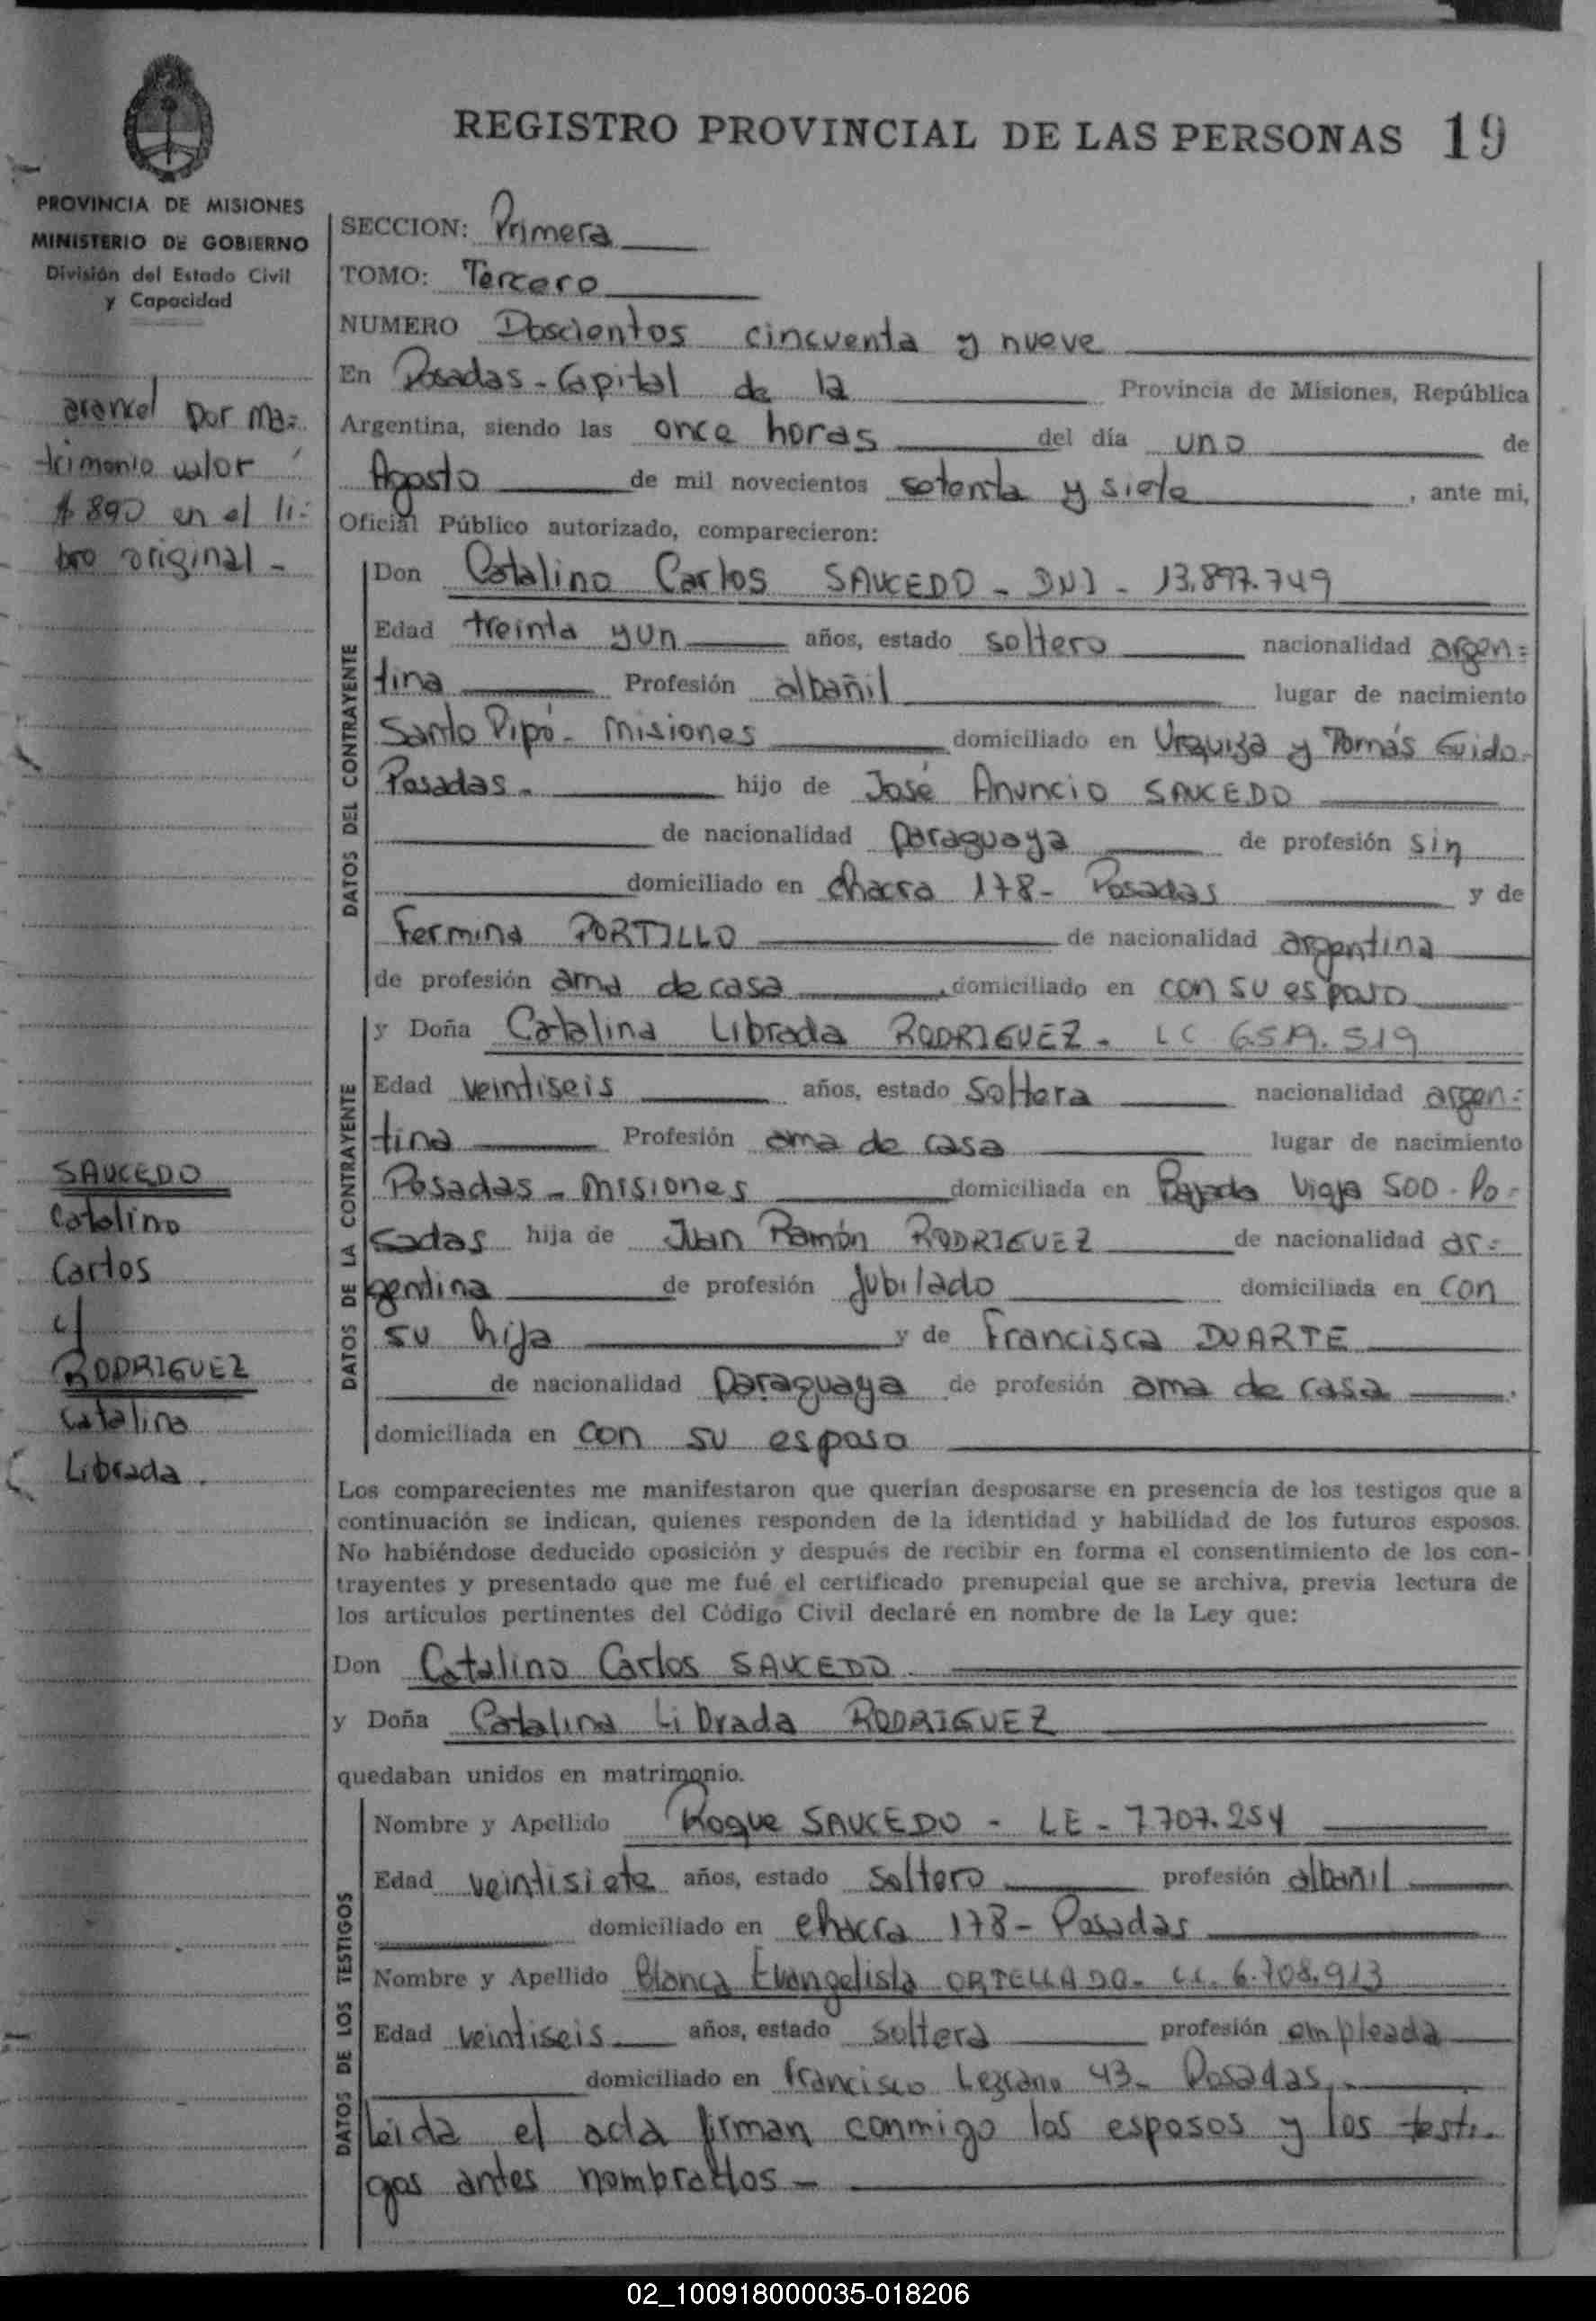 REGISTRO PROVINCIAL DE LAS PERSONAS 19
PROVINCIA DE MISIONES
MINISTERIO DE GOBIERNO
División del Estado Civil
y Capacidad
arancel por ma=
trimonio valor
$ 890 en el li=
bro original -
SAUCEDO
Catalino
Carlos
c/
RODRIGUEZ
Catalina
Librada.
SECCION: Primera
TOMO: Tercero
NUMERO Doscientos cincuenta y nueve
En Posadas - Capital de la Provincia de Misiones, República
Argentina, siendo las once horas del día uno de
Agosto de mil novecientos setenta y siete, ante mi,
Oficial Público autorizado, comparecieron:
DATOS DEL CONTRAYENTE
Don Catalino Carlos SAUCEDO - DNI - 13.897.749
Edad treinta y un años, estado soltero nacionalidad argen=
tina Profesión albañil lugar de nacimiento
Santo Pipó - Misiones domiciliado en Urquiza y Tomás Guido -
Posadas - hijo de José Anuncio SAUCEDO
de nacionalidad paraguaya de profesión sin
domiciliado en chacra 178 - Posadas y de
Fermina PORTILLO de nacionalidad argentina
de profesión ama de casa, domiciliado en con su esposo
DATOS DE LA CONTRAYENTE
y Doña Catalina Librada RODRIGUEZ - LC 6.519.519
Edad veintiseis años, estado soltera nacionalidad argen=
tina Profesión ama de casa lugar de nacimiento
Posadas - Misiones domiciliada en Bajada Vieja 500 - Po=
sadas hija de Juan Ramón RODRIGUEZ de nacionalidad ar=
gentina de profesión jubilado domiciliada en con
su hija y de Francisca DUARTE
de nacionalidad paraguaya de profesión ama de casa.
domiciliada en con su esposo
Los comparecientes me manifestaron que querían desposarse en presencia de los testigos que a
continuación se indican, quienes responden de la identidad y habilidad de los futuros esposos.
No habiéndose deducido oposición y después de recibir en forma el consentimiento de los con-
trayentes y presentado que me fué el certificado prenupcial que se archiva, previa lectura de
los artículos pertinentes del Código Civil declaré en nombre de la Ley que:
Don Catalino Carlos SAUCEDO
y Doña Catalina Librada RODRIGUEZ
quedaban unidos en matrimonio.
DATOS DE LOS TESTIGOS
Nombre y Apellido Roque SAUCEDO - LE - 7.707.254
Edad veintisiete años, estado soltero profesión albañil
domiciliado en chacra 178 - Posadas
Nombre y Apellido Blanca Evangelista ORTELLADO - LC. 6.708.913
Edad veintiseis años, estado soltera profesión empleada
domiciliado en Francisco Lezcano 43 - Posadas. -
leida el acta firman conmigo los esposos y los testi-
gos antes nombrados -
02_100918000035-018206